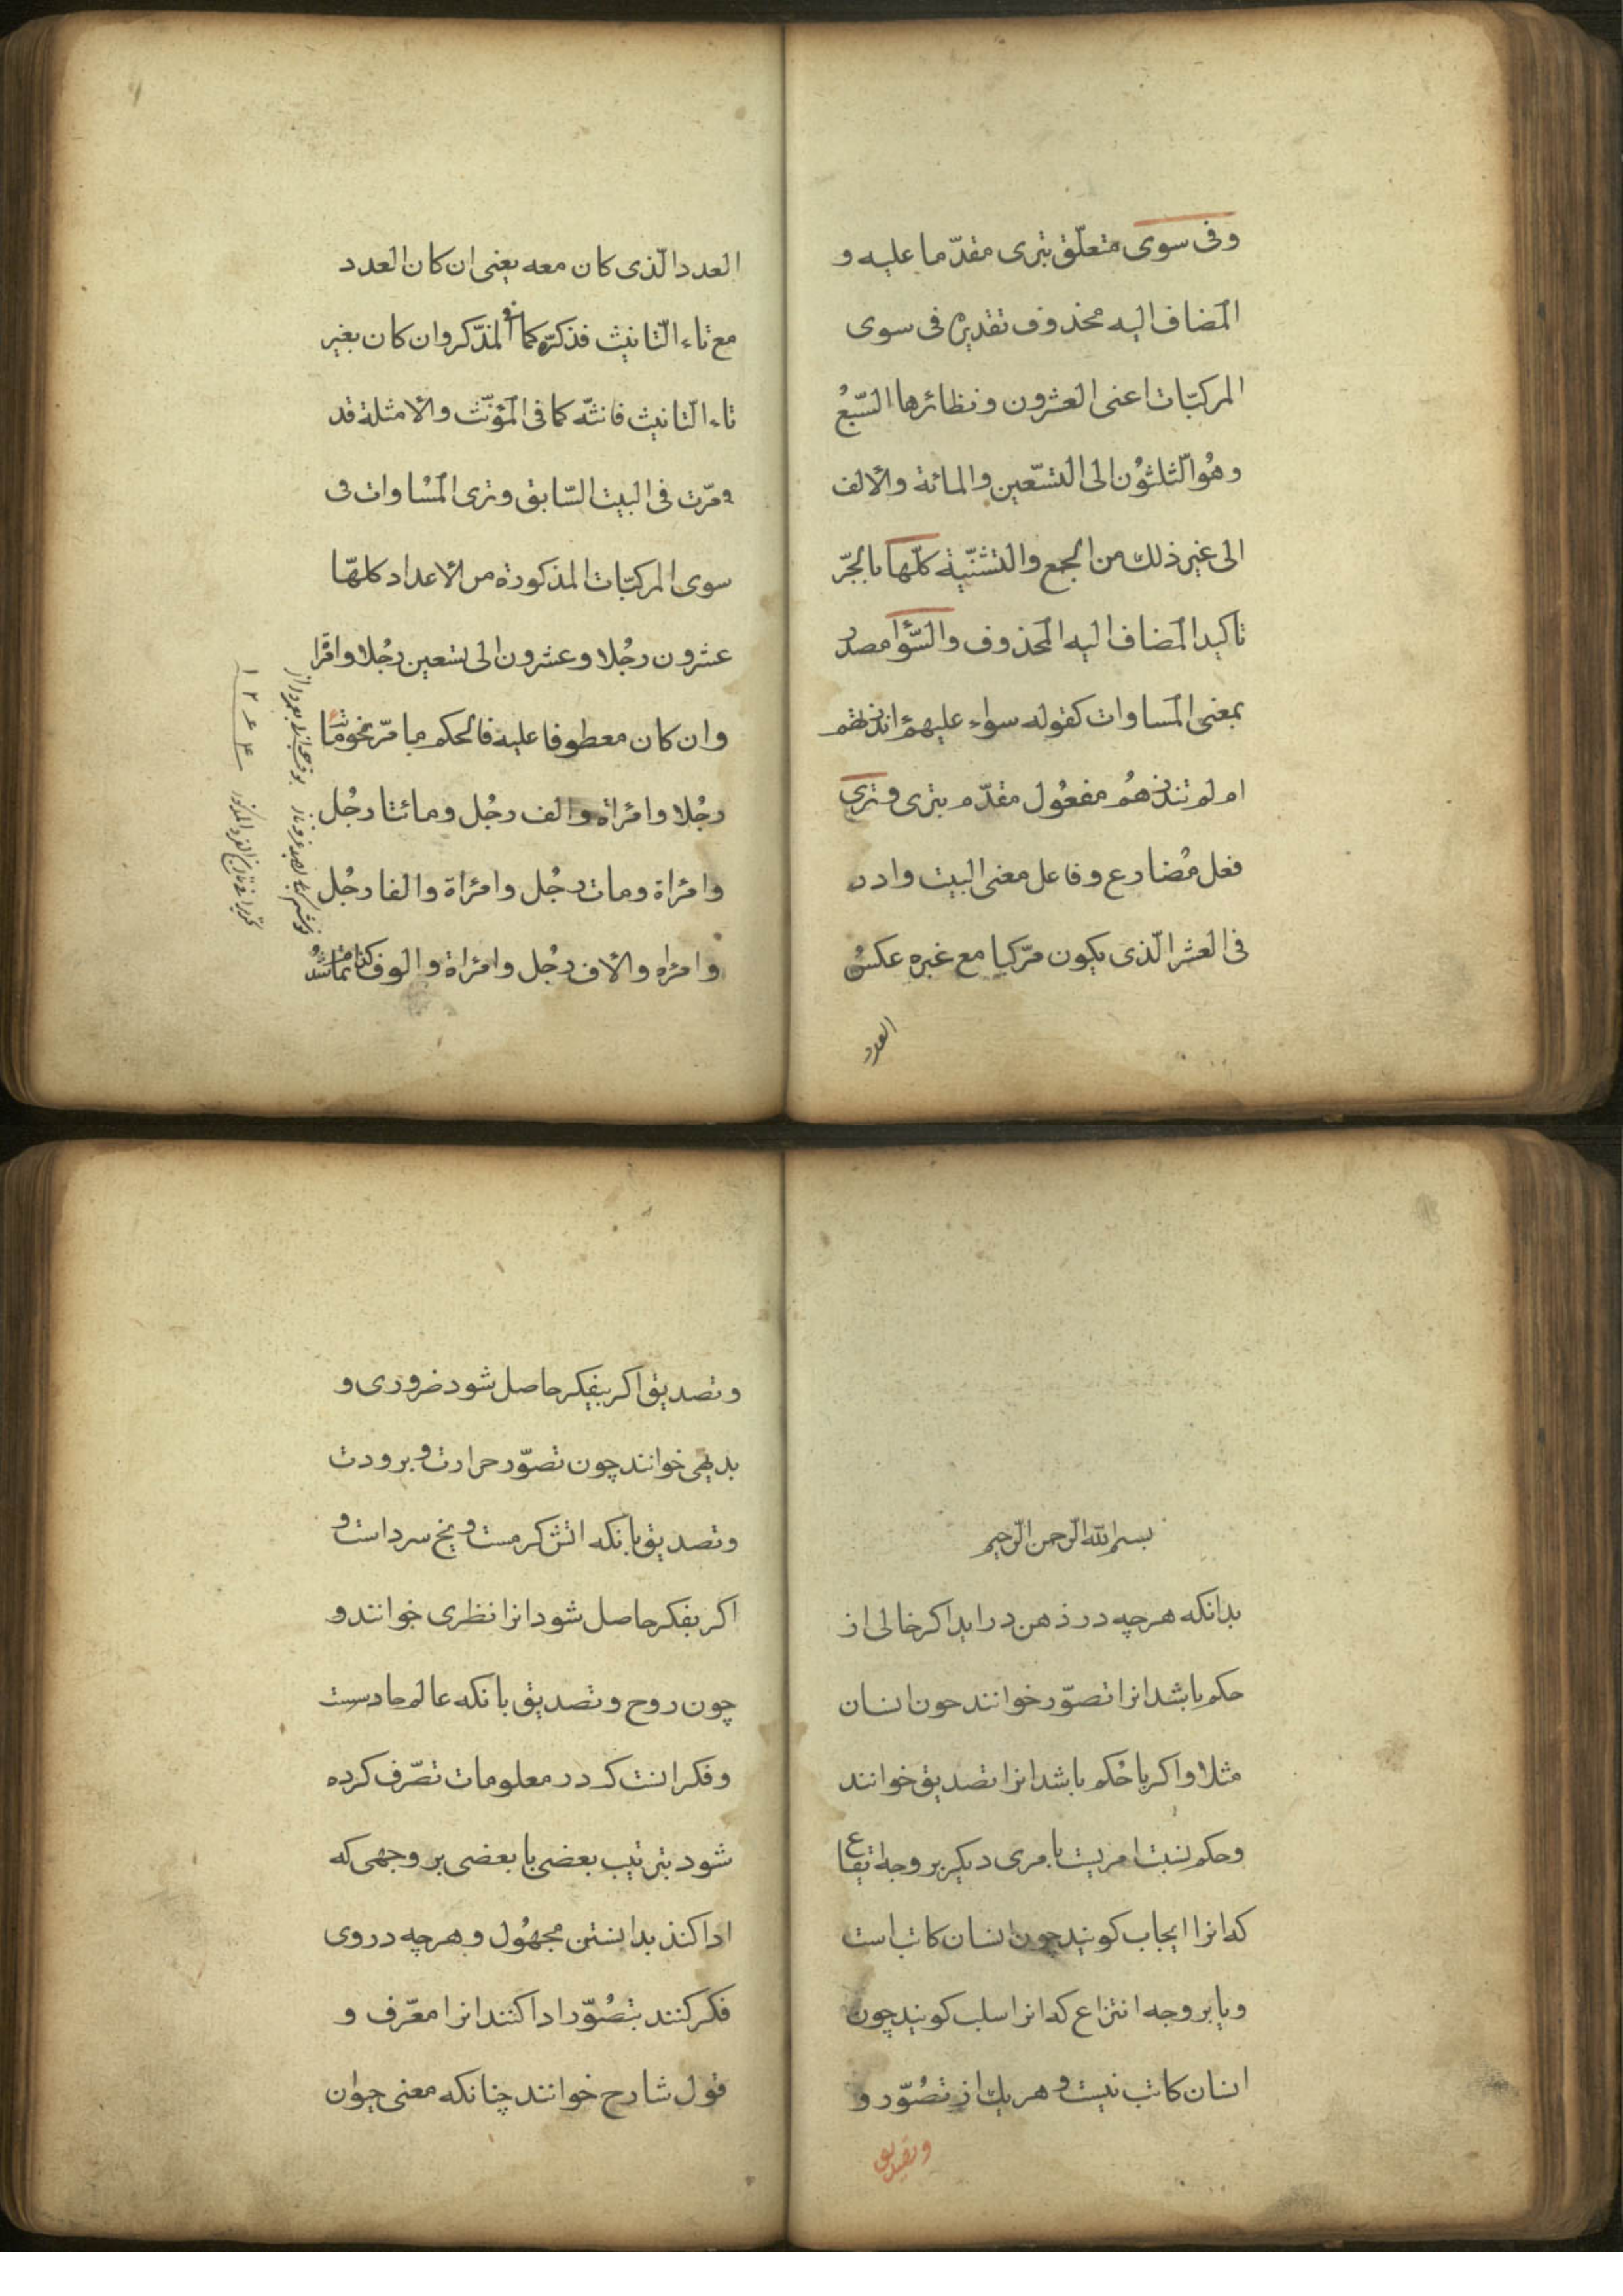 وفی سوی متعلّق بتری مقدّما علیه و
المضاف الیه محذوف تقدیره فی سوی
المرکبّات اعنی العشرون ونظائرها السّبعُ
وهُوالّثلثوُن الی التسّعین والمائة والالف
الی غیر ذلك من الجمع والتشنّیة کلّها بالجّر
تاکید المضاف الیه المحذوف والسّوا مصدر
بمعنی المساوات کقوله سواء علیهم ءانذرتهم
ام لم تنذرهُم مفعُول مقدّم بتری وتری
فعل مُضارع وفاعل معنی البیت وادر
فی العشر الّذی یکون مرّکبا مع غیره عکسُ
العدد
العدد الّذی کان معه یعنی ان کان العدد
مع تاء التّانیث فذکرّه کما فی المذّکر وان کان بغیر
تاء التانیث فانثّه کما فی المؤنّث والامثلة قد
مرّت فی البیت السّابق وتری المسُاوات فی
سوی المرکبّات المذکورة من الاعداد کلهّا
عشرون رجُلا وعشرون الی تسعین رجُلا وامرا
وان کان معطوفا علیه فالحکم ما مرّ نحو
رجُلا وامرُاة والف رجُل ومائتا رجُل
وامرُاة ومات رجُل وامرُاة والفا رجُل
وامرُاه والاف رجُل وامرُاة والوف
۱۲۶۴
بسم الله الرّحمن الرّحیم
بدانکه هرچه در ذهن دراید اکر خالی از
حکم باشد انرا تصوّر خوانند چون انسان
مثلا واکر باحُکم باشد انرا تصدیق خوانند
وحکم نسبت امریست بامری دیکر بر وجه ایقاع
که انرا ایجاب کویند چون انسان کاتب است
ویا بر وجه انتزاع که انرا سلب کویند چون
انسان کاتب نیست و هریك از تصُوّر و
وتصدیق
وتصدیق اکر بیفکر حاصل شود ضروری و
بدیهی خوانند چون تصوّر حرارت و برودت
وتصدیق بانکه اتش کرمست و یخ سرد است و
اکر بفکر حاصل شود انرا نظری خوانند و
چون روح وتصدیق بانکه عالم حادسست
وفکر انست که در معلومات تصّرف کرده
شود بترتیب بعضی با بعضی بر وجهی که
ادا کند بدانستن مجهُول وهرچه در وی
فکر کنند بتصُوّر ادا کنند انرا معّرف و
قول شارح خوانند چنانکه معنی حیوان